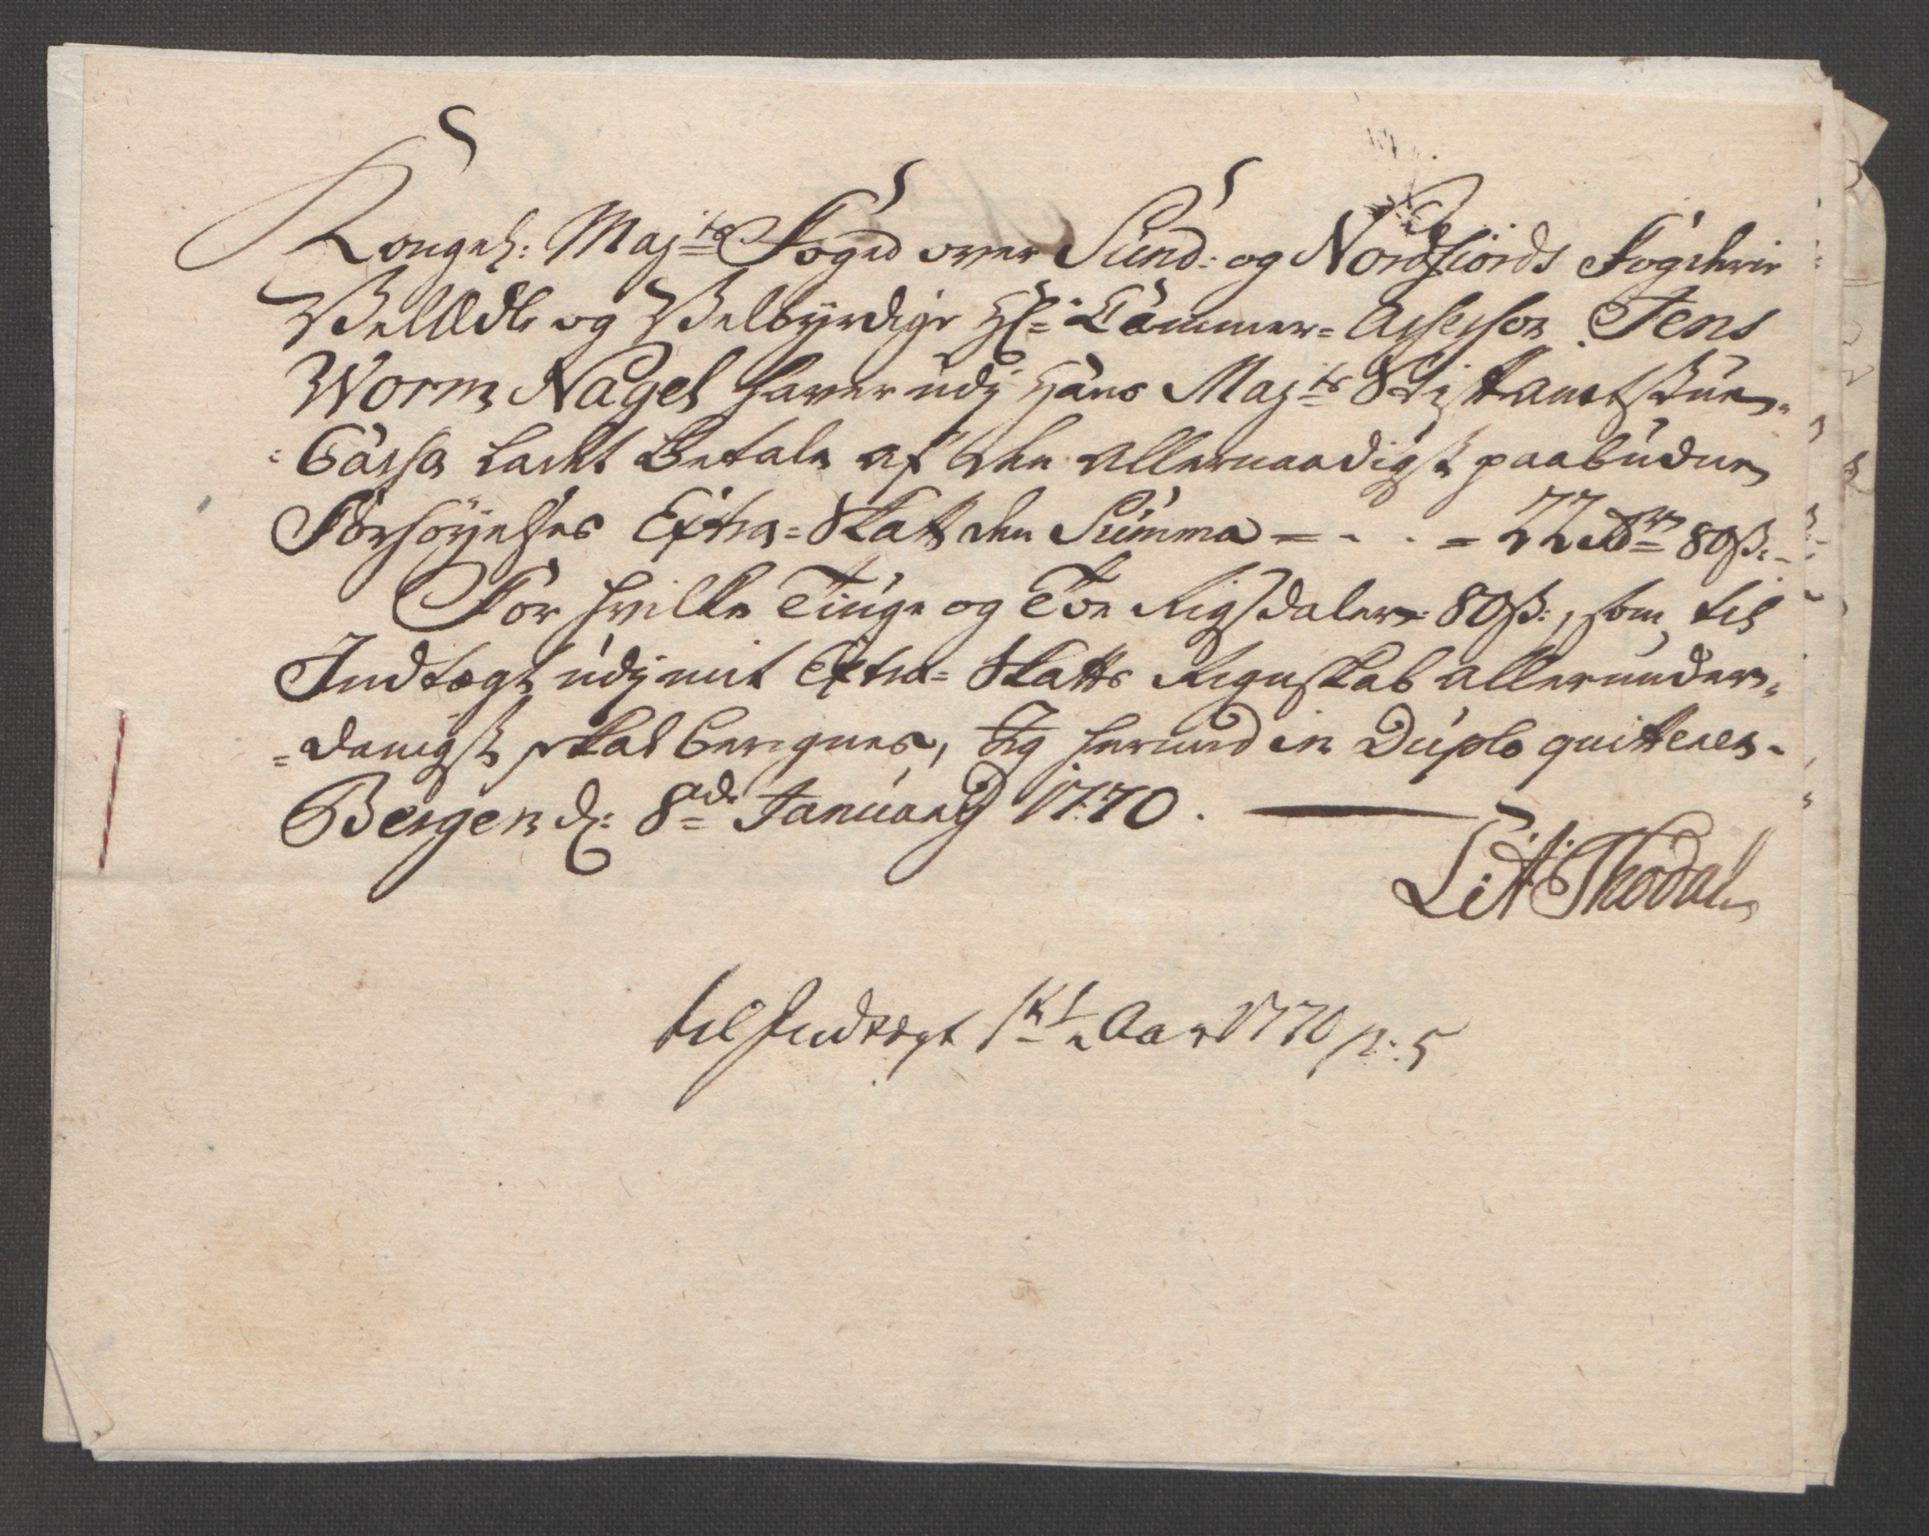 Kongel: Maj:ts Foged over Sund- og Nordfiords Fogderie
VelÆdle og Velbyrdige Hr: Cammer- Assessor Jens
Worm Nagel haver udj Hans Maj:ts Stiftamtstue-
-Cassa ladet betale af den allernaadigst paabudne
Forhöyelses Extra-Skatt den Summa = - . . = 22 Rdr 80 ß:
For hvilke Tiuge og Toe Rigsdaler: 80 ß:, som til
Indtægt udj mit Extra-Skatts Regnskab allerunder-
-danigst skal beregnes, Jeg herved in Duplo quitterer-
Bergen d: 8de January 1770.
Thodal
til Indtægt Aar 1770 p: 5